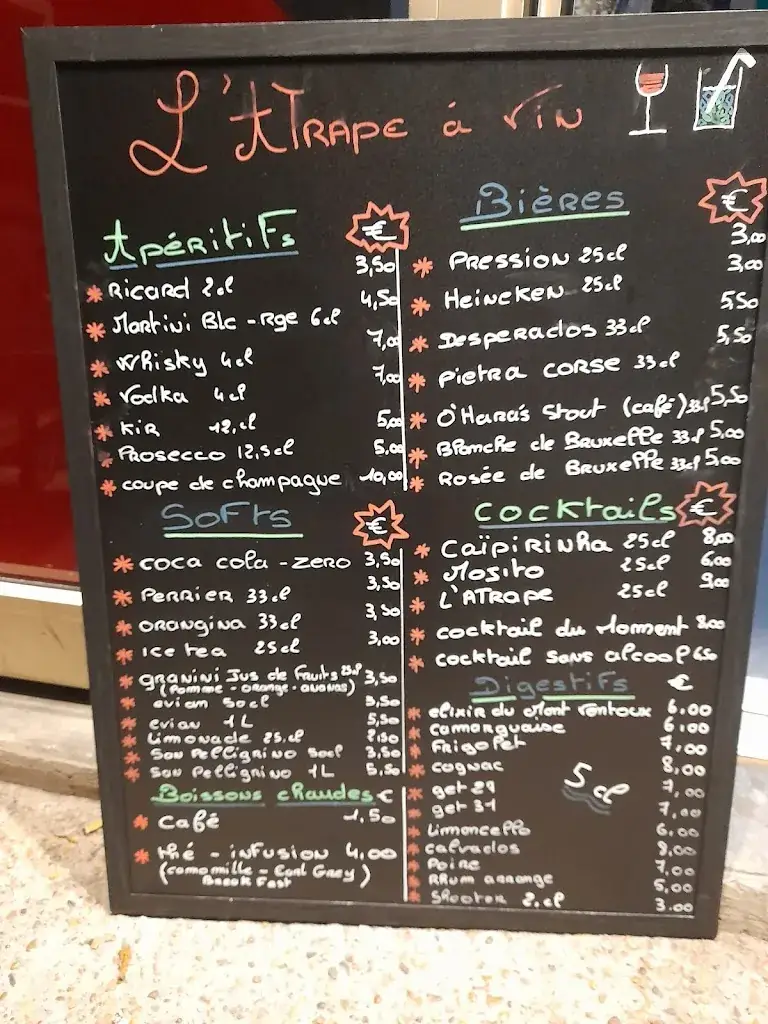 L'ATRAPE à VIN
Apéritifs €
Ricard 2cl 3,50
Martini Blc - Rge 6cl 4,50
Whisky 4cl 7,00
Vodka 4cl 7,00
Kir 12,cl 5,00
Prosecco 12,5cl 5,00
coupe de champagne 10,00
Softs €
coca cola - ZERO 3,50
Perrier 33cl 3,50
Orangina 33cl 3,50
Ice tea 25cl 3,00
GRANINI Jus de fruits 25cl 3,50
(Pomme - orange - ananas)
evian 50cl 3,50
evian 1L 5,50
Limonade 25cl 2,50
San Pelligrino 50cl 3,50
San Pelligrino 1L 5,50
Boissons chaudes €
Café 1,50
thé - infusion 4,00
(camomille - Earl Grey
Break Fast )
Bières €
Pression 25cl 3,00
Heineken 25cl 3,00
Desperados 33cl 5,50
Pietra CORSE 33cl 5,50
O'Hara's Stout (café) 33cl 5,50
Blanche de Bruxelle 33cl 5,00
Rosée de Bruxelle 33cl 5,00
Cocktails €
Caïpirinha 25cl 8,00
Mojito 25cl 6,00
L'ATRAPE 25cl 9,00
cocktail du Moment 8,00
cocktail sans alcool 6,50
Digestifs €
elixir du Mont Ventoux 6.00
camarguaise 6.00
Frigolet 7,00
cognac 8,00
5cl
get 27 7,00
get 31 7,00
Limoncello 6.00
calvados 8,00
Poire 7.00
Rhum arrangé 5,00
Shooter 2,cl 3.00